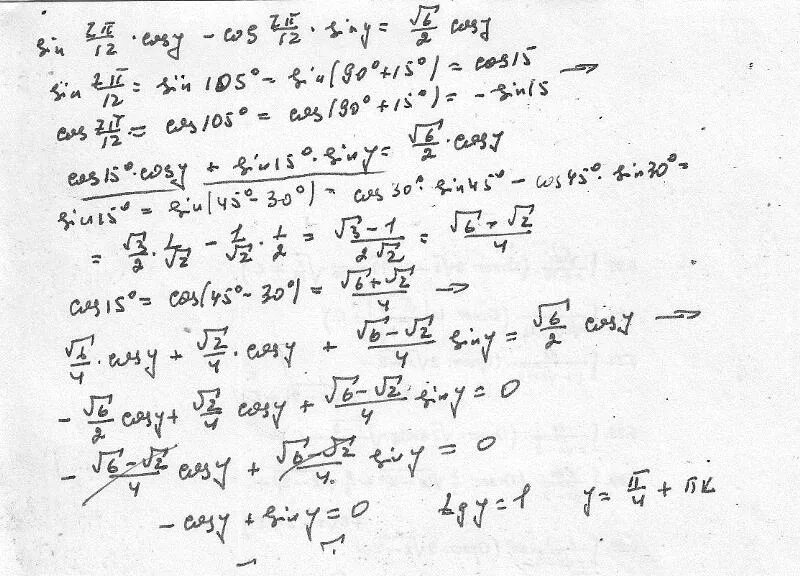 sin 7π/12 · cosy - cos 7π/12 · siny = √6/2 cosy
sin 7π/12 = sin 105° = sin(90°+15°) = cos15 →
cos 7π/12 = cos105° = cos(90°+15°) = -sin15
cos15°·cosy + sin15°·siny = √6/2 · cosy
sin15° = sin(45°-30°) = cos30°·sin45° - cos45°·sin30° =
= √3/2 · 1/√2 - 1/√2 · 1/2 = √3-1/2√2 = √6-√2/4
cos15° = cos(45°-30°) = √6+√2/4 →
√6/4 · cosy + √2/4 · cosy + √6-√2/4 siny = √6/2 cosy →
- √6/2 cosy + √2/4 cosy + √6-√2/4 siny = 0
- √6-√2/4 cosy + √6-√2/4 siny = 0
-cosy + siny = 0 tgy = 1 y = π/4 + πk